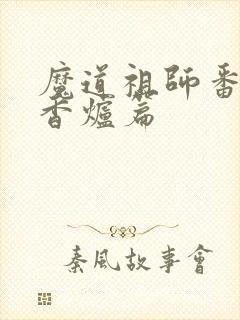 魔道祖師番
香爐篇
秦風故事會